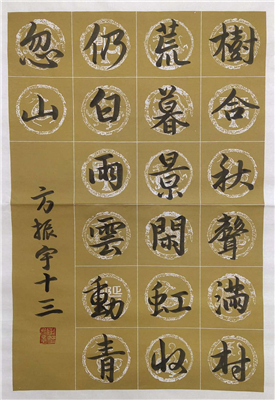 樹合秋聲滿村
荒暮景閑虹收
仍白雨雲動青
忽山
方振宇十三